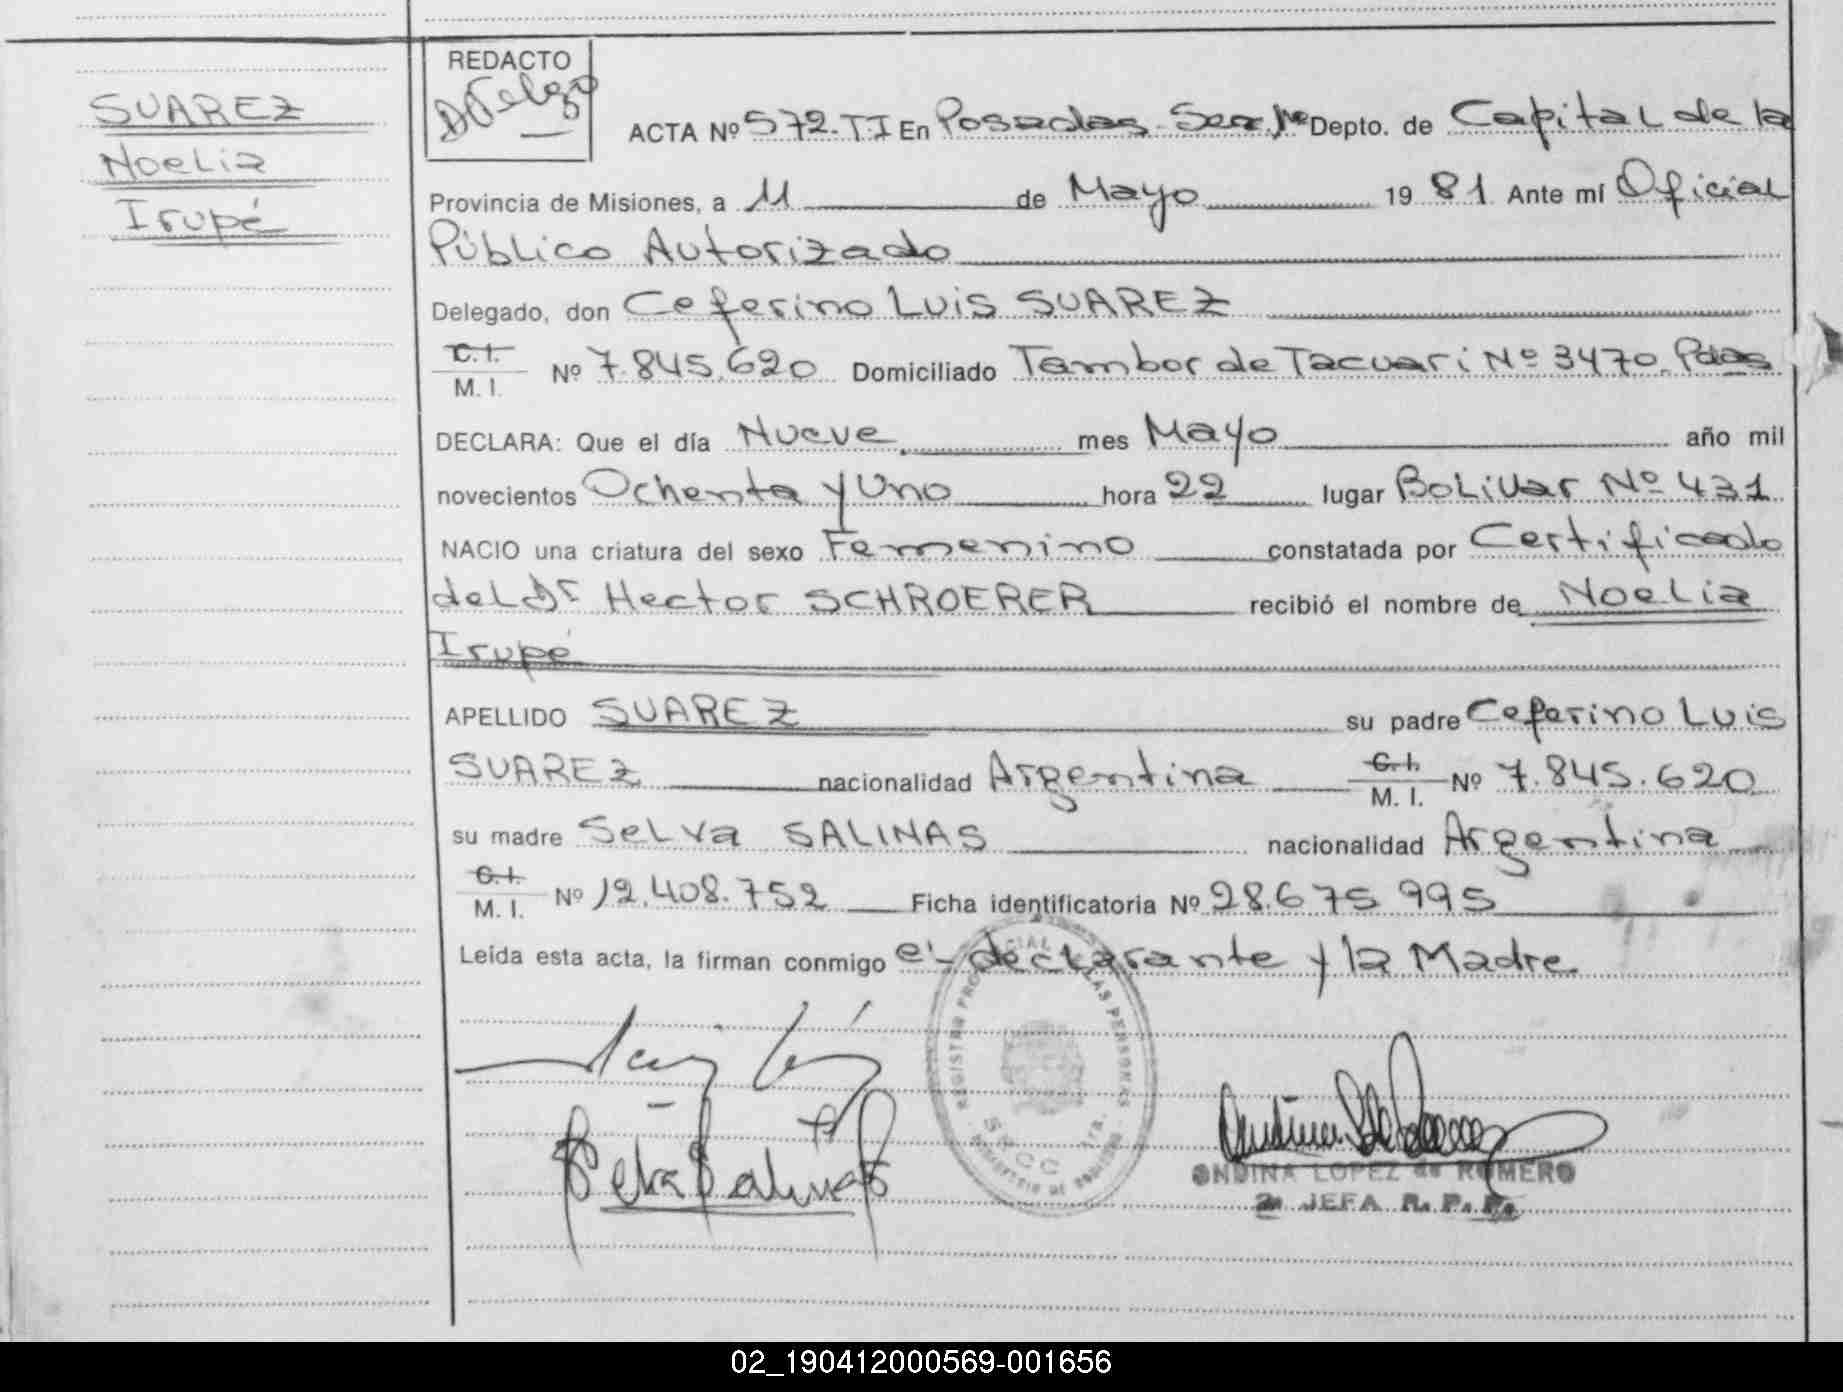 SUAREZ
Noelia
Irupé
REDACTO
ACTA Nº 572. T. I En Posadas. Depto. de Capital de la
Provincia de Misiones, a 11 de Mayo 1981 Ante mí Oficial
Público Autorizado
Delegado, don Ceferino Luis SUAREZ
C. I.
M. I. Nº 7.845.620 Domiciliado Tambor de Tacuari Nº 3470. Pdas
DECLARA: Que el día Nueve mes Mayo año mil
novecientos Ochenta y Uno hora 22 lugar Bolivar Nº 431
NACIO una criatura del sexo Femenino constatada por Certificado
del Dr Hector SCHROERER recibió el nombre de Noelia
Irupé
APELLIDO SUAREZ su padre Ceferino Luis
SUAREZ nacionalidad Argentina C. I.
M. I. Nº 7.845.620
su madre Selva SALINAS nacionalidad Argentina
C. I.
M. I. Nº 12.408.752 Ficha identificatoria Nº 28.675 995
Leída esta acta, la firman conmigo el declarante y la Madre
REGISTRO PROVINCIAL DE LAS PERSONAS
ONDINA LOPEZ de ROMERO
2a JEFA R. P. P.
02_190412000569-001656